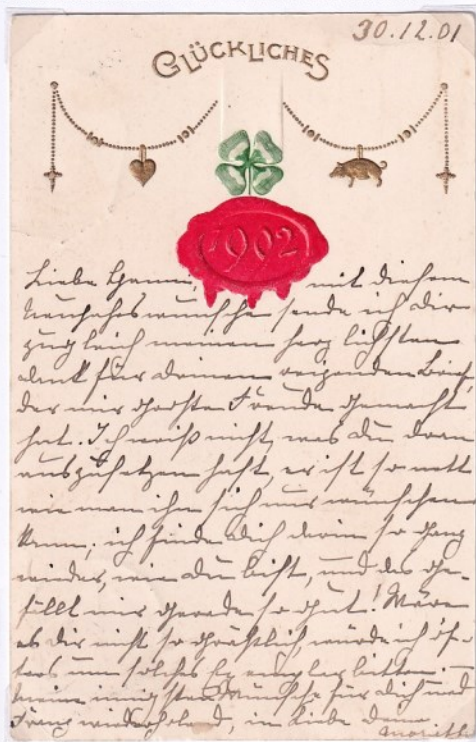 30.12.01
GLÜCKLICHES
1902
Liebe mit diesem
Neujahrswunsche sende ich Dir
zugleich meinen herzlichsten
Dank für Deinen reizenden Brief
der mir große Freude gemacht
hat. Ich weiß nicht, was Du daran
auszusetzen hast, er ist so nett
wie man ihn sich nur wünschen
kann; ich finde Dich darin so ganz
wieder, wie Du bist, und das ge-
fällt mir gerade so gut! Wäre
es Dir nicht so gräßlich, würde ich öf-
ters um solches Exemplar bitten. —
Meine innigsten Wünsche für Dich und
Franz wiederholend, in Liebe Deine
Marietta